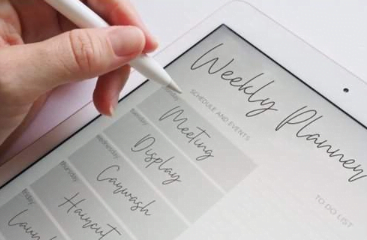 Weekly Planner
SCHEDULE AND EVENTS
TO DO LIST
Meeting
Display
Carwash
Haircut